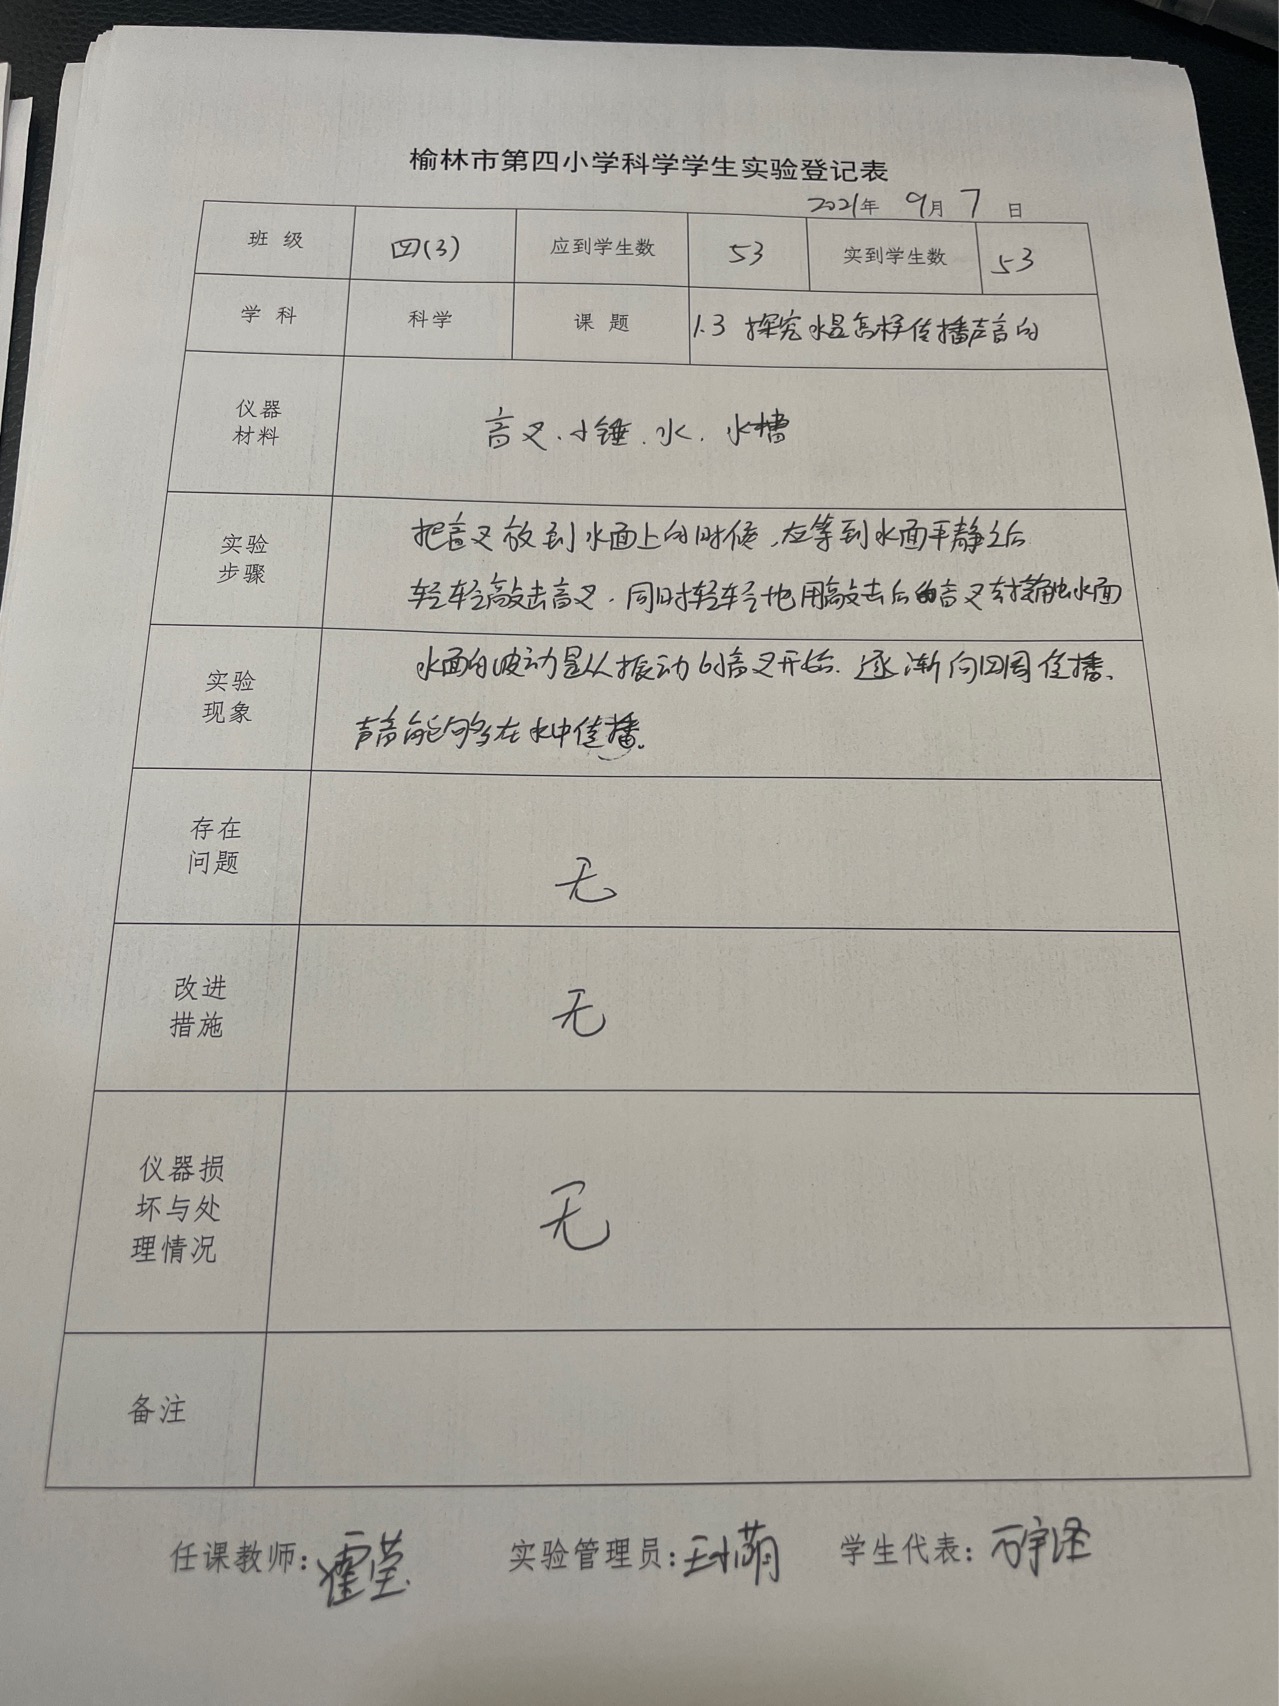 榆林市第四小学科学学生实验登记表
2021年 9月 7 日
班 级 四(3) 应到学生数 53 实到学生数 53
学 科 科学 课 题 1.3 探究水是怎样传播声音的
仪器
材料
音叉、小锤、水、水槽
实验
步骤
把音叉放到水面上的时候,应等到水面平静之后
轻轻敲击音叉,同时轻轻地用敲击后的音叉去接触水面
实验
现象
水面的波动是从振动的音叉开始,逐渐向四周传播、
声音能够在水中传播.
存在
问题
无
改进
措施
无
仪器损
坏与处
理情况
无
备注
任课教师: 霍莹 实验管理员: 学生代表: